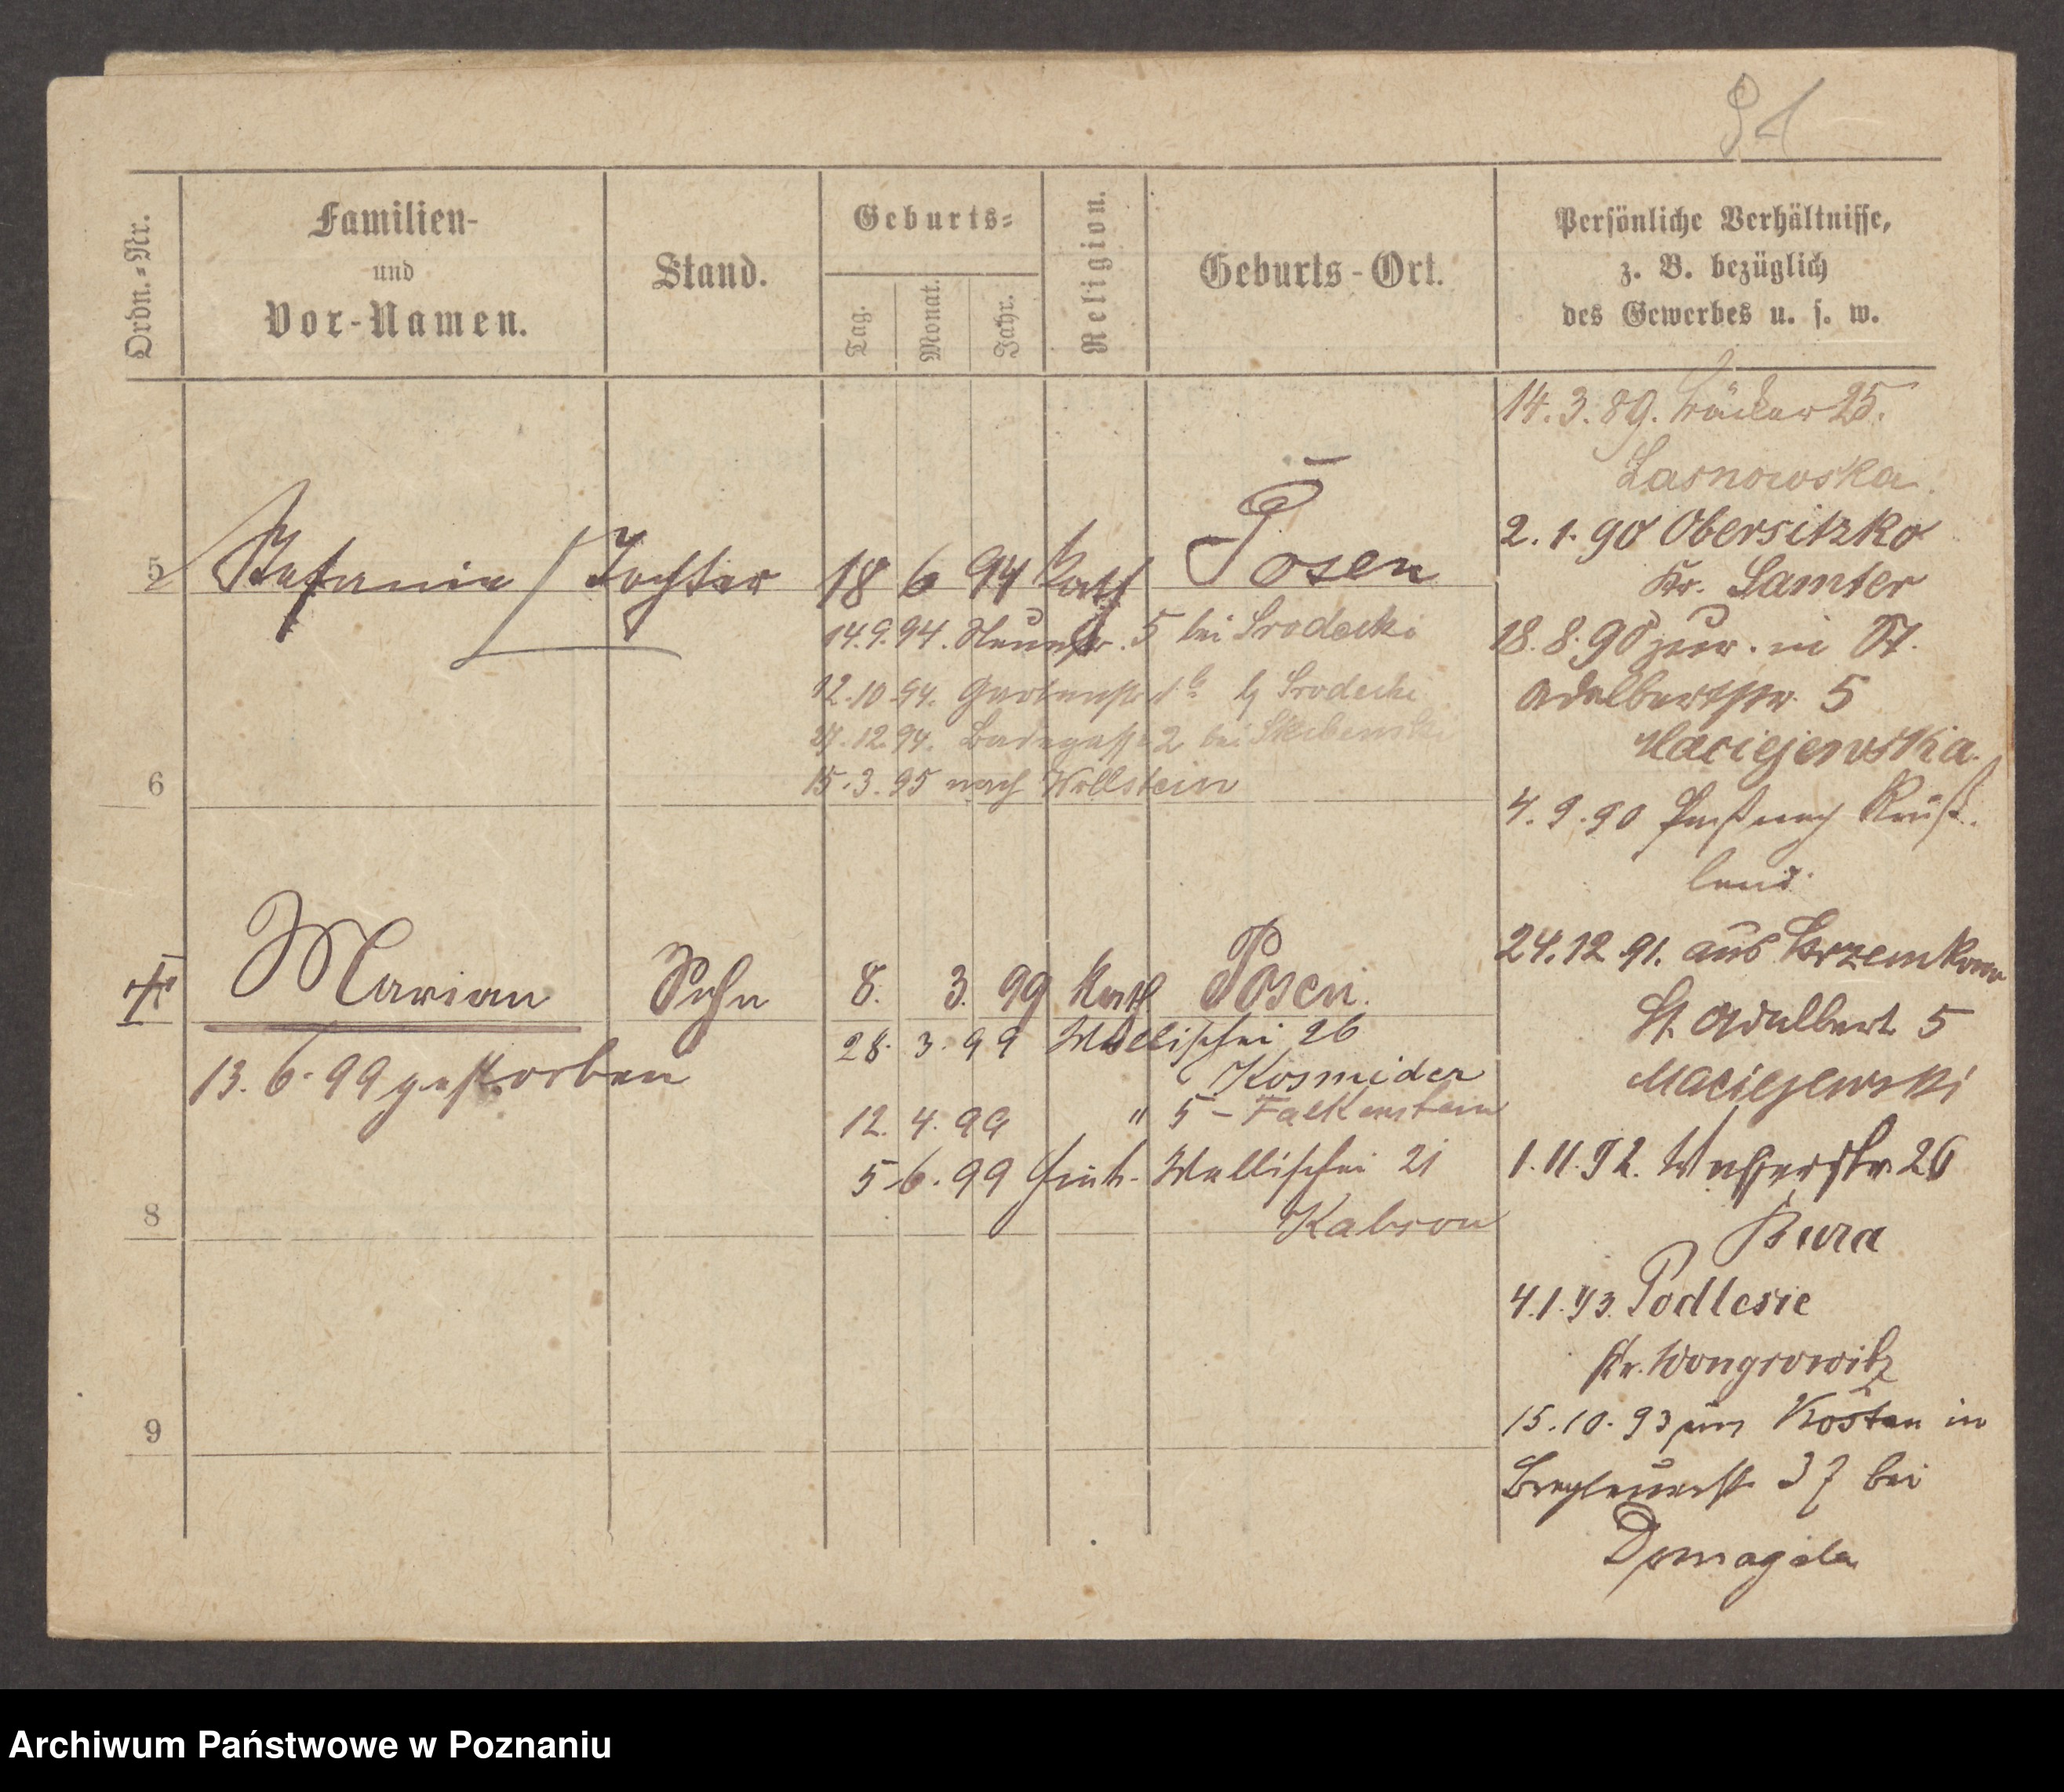 91
Ordn.=Nr.
Familien-
und
Vor-Namen.
Stand.
Geburts=
Tag.
Monat.
Jahr.
Religion.
Geburts-Ort.
Persönliche Verhältnisse,
z. B. bezüglich
des Gewerbes u. s. w.
5 Stefanie Tochter 18 6 94 kath Posen
14.9.94. 5 bei Srodecki
12.10.94. Gartenstr Srodecki
12.94. Badegasse 2 bei
15.3.95 nach Wollstein
6
Marian Sohn 8. 3. 99 Kath Posen.
13.6.99 gestorben
28. 3. 99 Wallischei 26
Kosmider
12. 4. 99 " 5 - Falkenstein
5.6.99 Wallischei 21
8
9
14.3.89. 25.
Lasnowska.
2.1.90 Obersitzko
Kr. Samter
18.8.90 zur. in St.
Adalbertstr. 5
Maciejewska.
4.9.90 Paß nach Ruß-
land.
24.12.91. aus
St. Adalbert 5
Maciejewski
1.11.92. Wasserstr 26
Bura
4.1.93. Podlesie
Kr. Wongrowitz
15.10.93 aus Kosten in
37 bei
Domagala
Archiwum Państwowe w Poznaniu